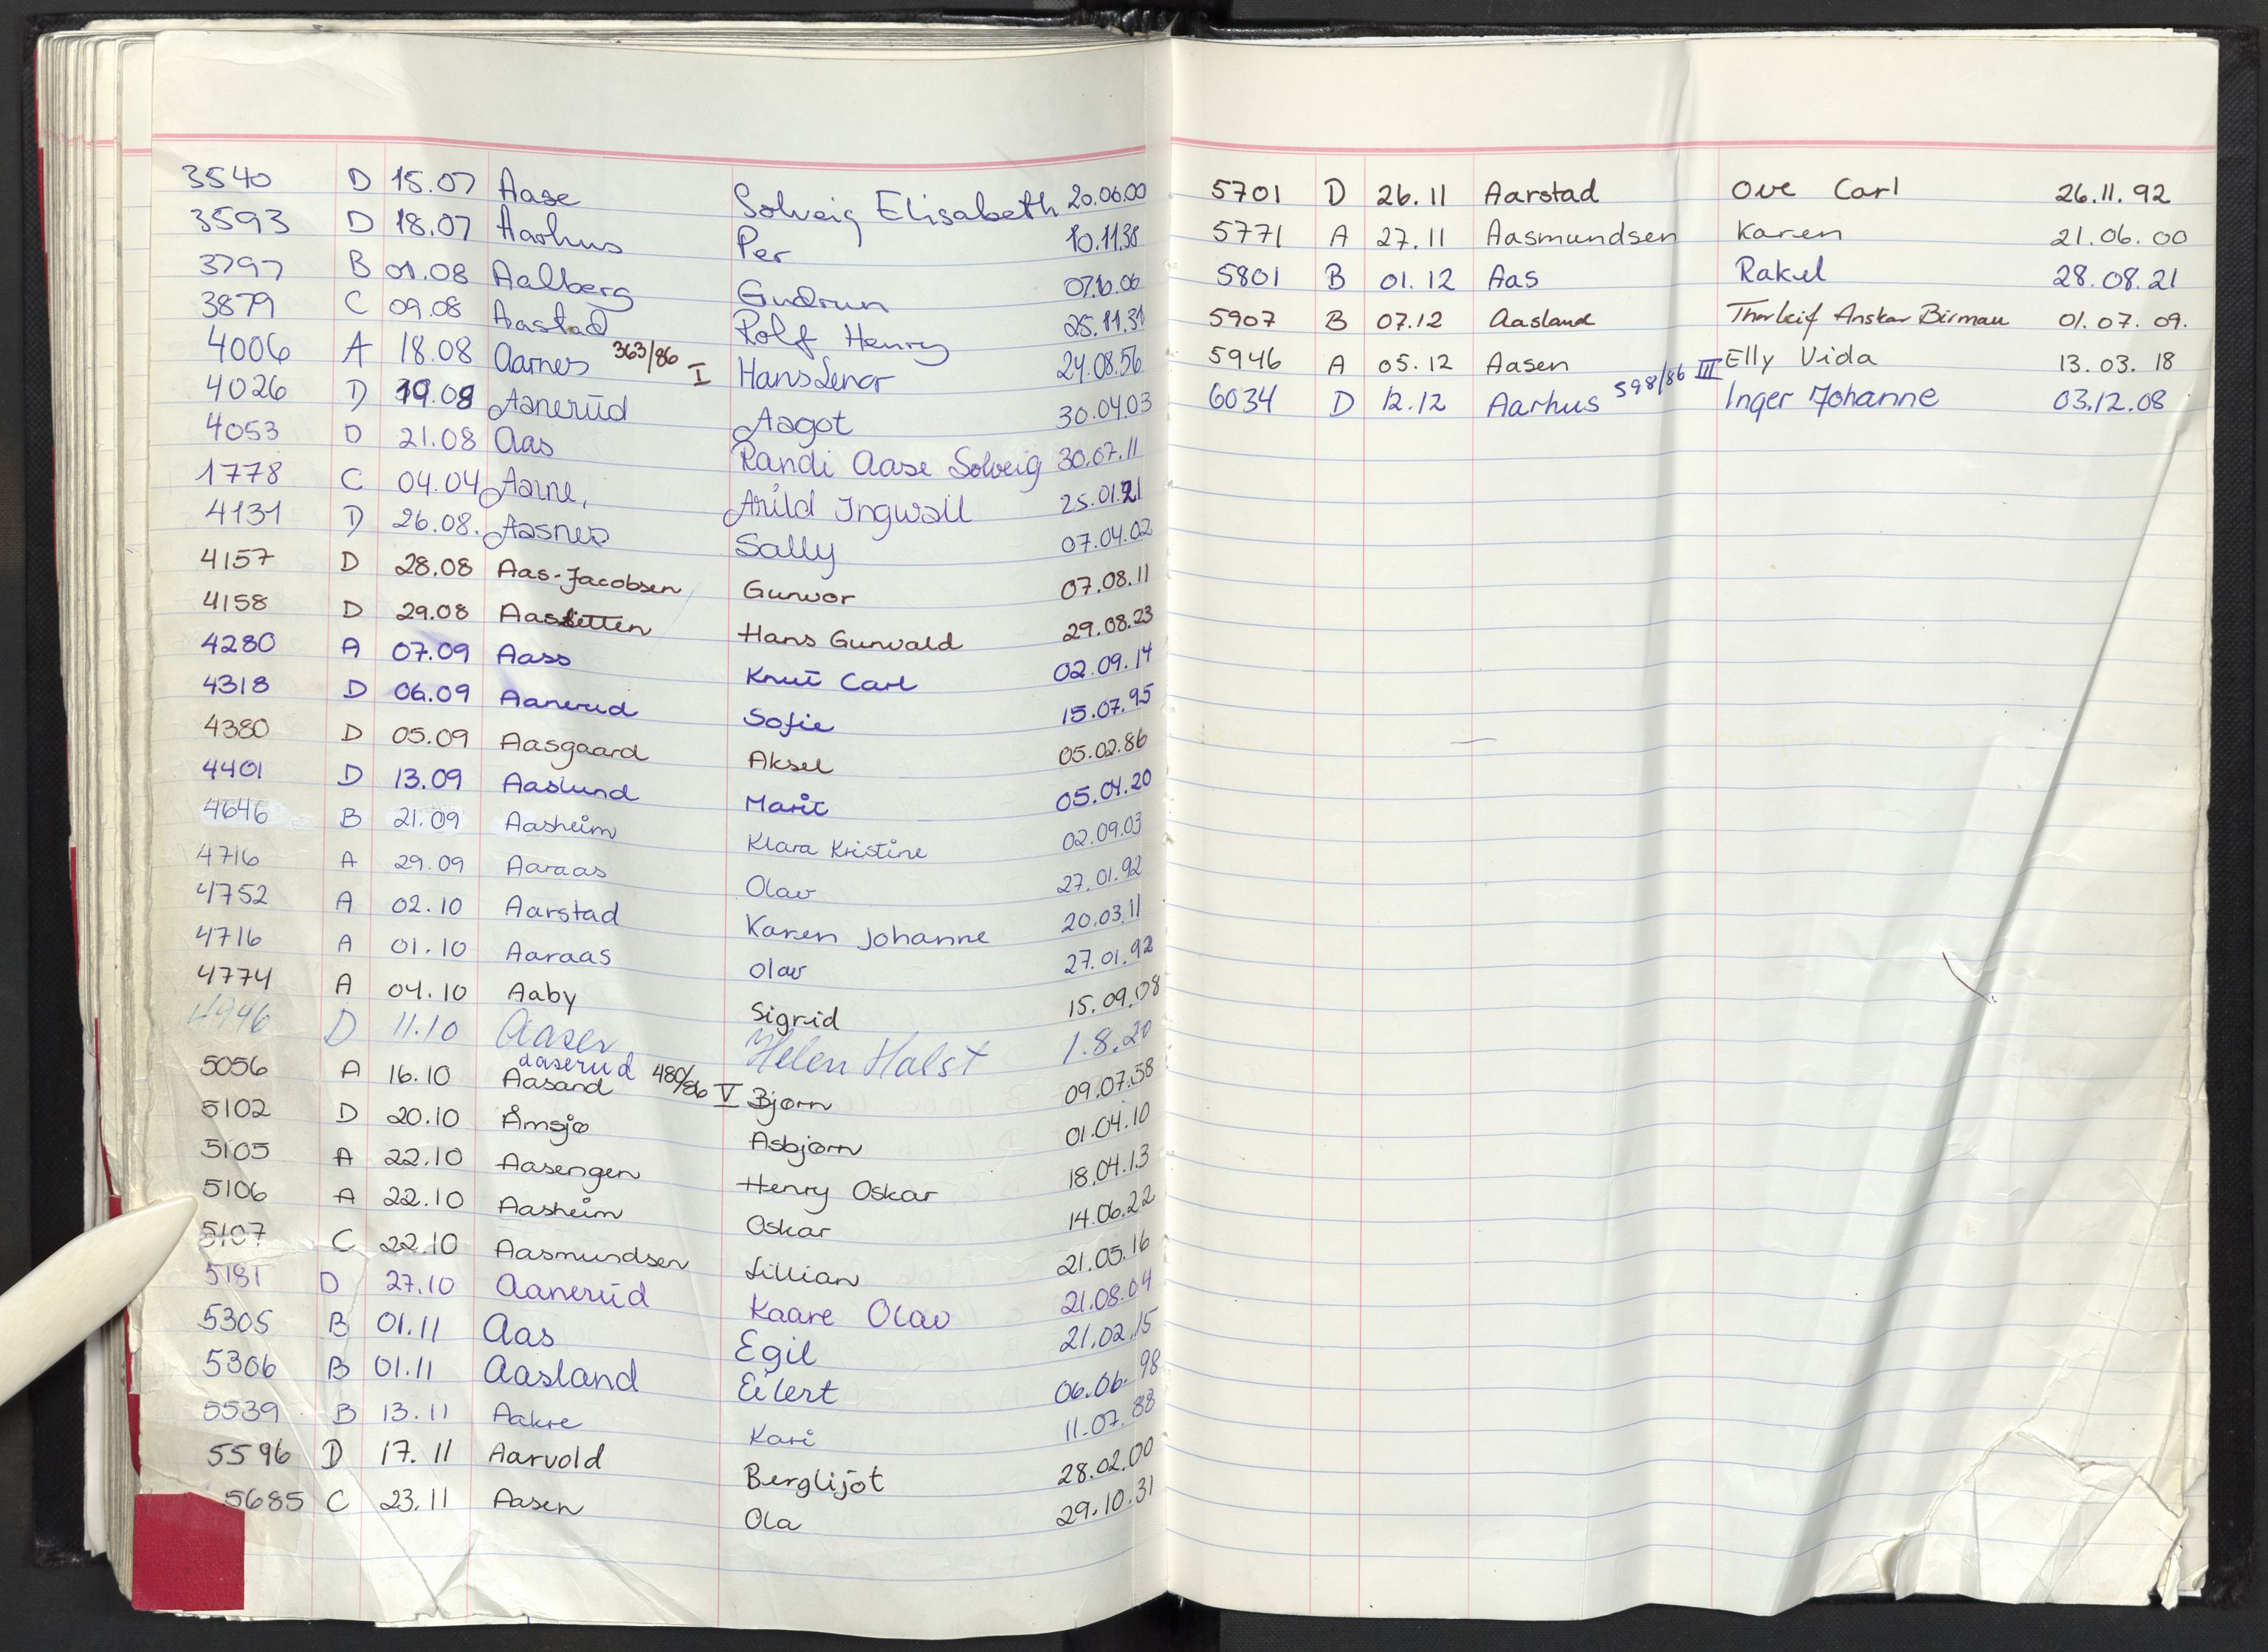 3540 D 15.07 Aase Solveig Elisabeth 20.06.00
3593 D 18.07 Aarhus Per 10.11.38
3797 B 01.08 Aalberg Gudrun 07.10.06
3879 C 09.08 Aastad Rolf Henry 25.11.31
4006 A 18.08 Aarnes 363/86 I Hans Lenor 24.08.56
4026 D 19.08 Aanerud Aagot 30.04.03
4053 D 21.08 Aas Randi Aase Solveig 30.07.11
1778 C 04.04 Aarne, Arild Ingwall 25.01.21
4131 D 26.08. Aasnes Sally 07.04.02
4157 D 28.08 Aas-Jacobsen Gunvor 07.08.11
4158 D 29.08 Hans Gunvald 29.08.23
4280 A 07.09 Aass Knut Carl 02.09.14
4318 D 06.09 Aanerud Sofie 15.07.95
4380 D 05.09 Aasgaard Aksel 05.02.86
4401 D 13.09 Aaslund Marit 05.04.20
4646 B 21.09 Aasheim Klara Kristine 02.09.03
4716 A 29.09 Aaraas Olav 27.01.92
4752 A 02.10 Aarstad Karen Johanne 20.03.11
4716 A 01.10 Aaraas Olav 27.01.92
4774 A 04.10 Aaby Sigrid 15.09.08
4946 D 11.10 Aaser Helen Halst 1.8.20
aaserud
5056 A 16.10 Aasand 480/86 V Bjørn 09.07.58
5102 D 20.10 Åmsjø Asbjørn 01.04.10
5105 A 22.10 Aasengen Henry Oskar 18.04.13
5106 A 22.10 Aasheim Oskar 14.06.22
5107 C 22.10 Aasmundsen Lillian 21.05.16
5181 D 27.10 Aanerud Kaare Olav 21.08.04
5305 B 01.11 Aas Egil 21.02.15
5306 B 01.11 Aasland Eilert 06.06.98
5539 B 13.11 Aakre Kari 11.07.88
5596 D 17.11 Aarvold Berglijot 28.02.00
5685 C 23.11 Aasen Ola 29.10.31
5701 D 26.11 Aarstad Ove Carl 26.11.92
5771 A 27.11 Aasmundsen Karen 21.06.00
5801 B 01.12 Aas Rakel 28.08.21
5907 B 07.12 Aasland Thorleif Anskar Birman 01.07.09.
5946 A 05.12 Aasen Elly Vida 13.03.18
6034 D 12.12 Aarhus 598/86 III Inger Johanne 03.12.08